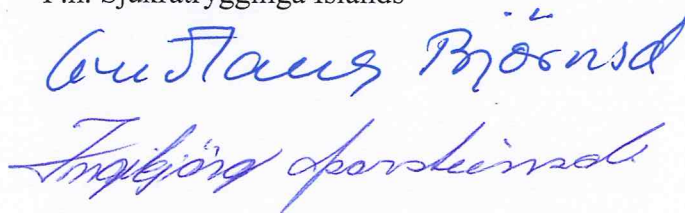 F.h. Sjúkratrygginga Íslands
Björnsd
Ingibjörg Þorsteinsd.